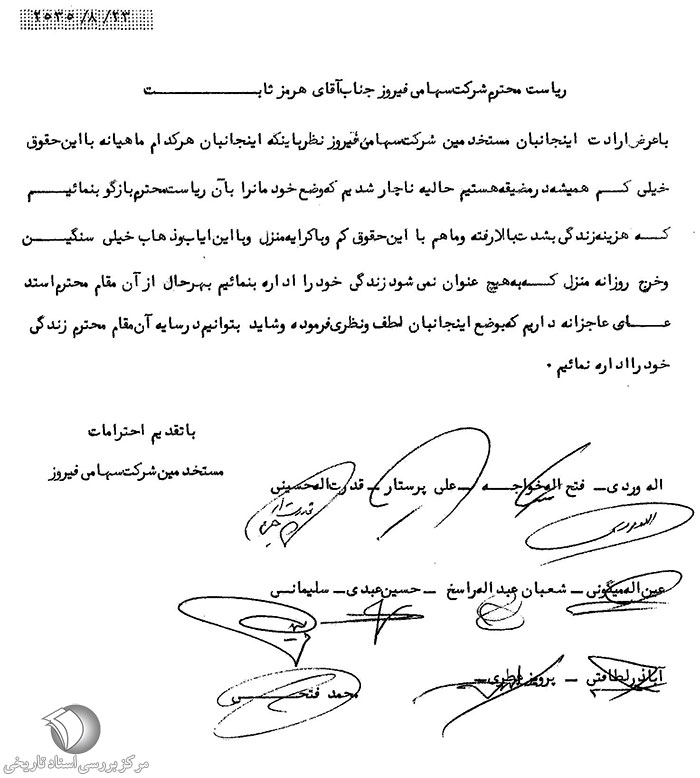 ۲۵۳۵/۸/۲۳
ریاست محترم شرکت سهامی فیروز جناب آقای هرمز ثابت
با عرض ارادت اینجانبان مستخدمین شرکت سهامی فیروز نظر باینکه اینجانبان هرکدام ماهیانه با این حقوق
خیلی کم همیشه در مضیقه هستیم حالیه ناچار شدیم که وضع خود مانرا بآن ریاست محترم بازگو بنمائیم
که هزینه زندگی بشدت بالا رفته و ما هم با این حقوق کم و با کرایه منزل و با این ایاب و ذهاب خیلی سنگین
و خرج روزانه منزل که به هیچ عنوان نمی شود زندگی خود را اداره بنمائیم بهرحال از آن مقام محترم استد
عای عاجزانه داریم که بوضع اینجانبان لطف و نظری فرموده و شاید بتوانیم در سایه آن مقام محترم زندگی
خود را اداره نمائیم .
با تقدیم احترامات
مستخدمین شرکت سهامی فیروز
اله وردی - فتح اله خواجه - علی پرستار - قدرت اله حسینی
عین اله میگونی - شعبان عبداله راسخ - حسین عبدی - سلیمانی
آباذر لطافتی - پرویز عطری -
محمد فتحی
مرکز بررسی اسناد تاریخی